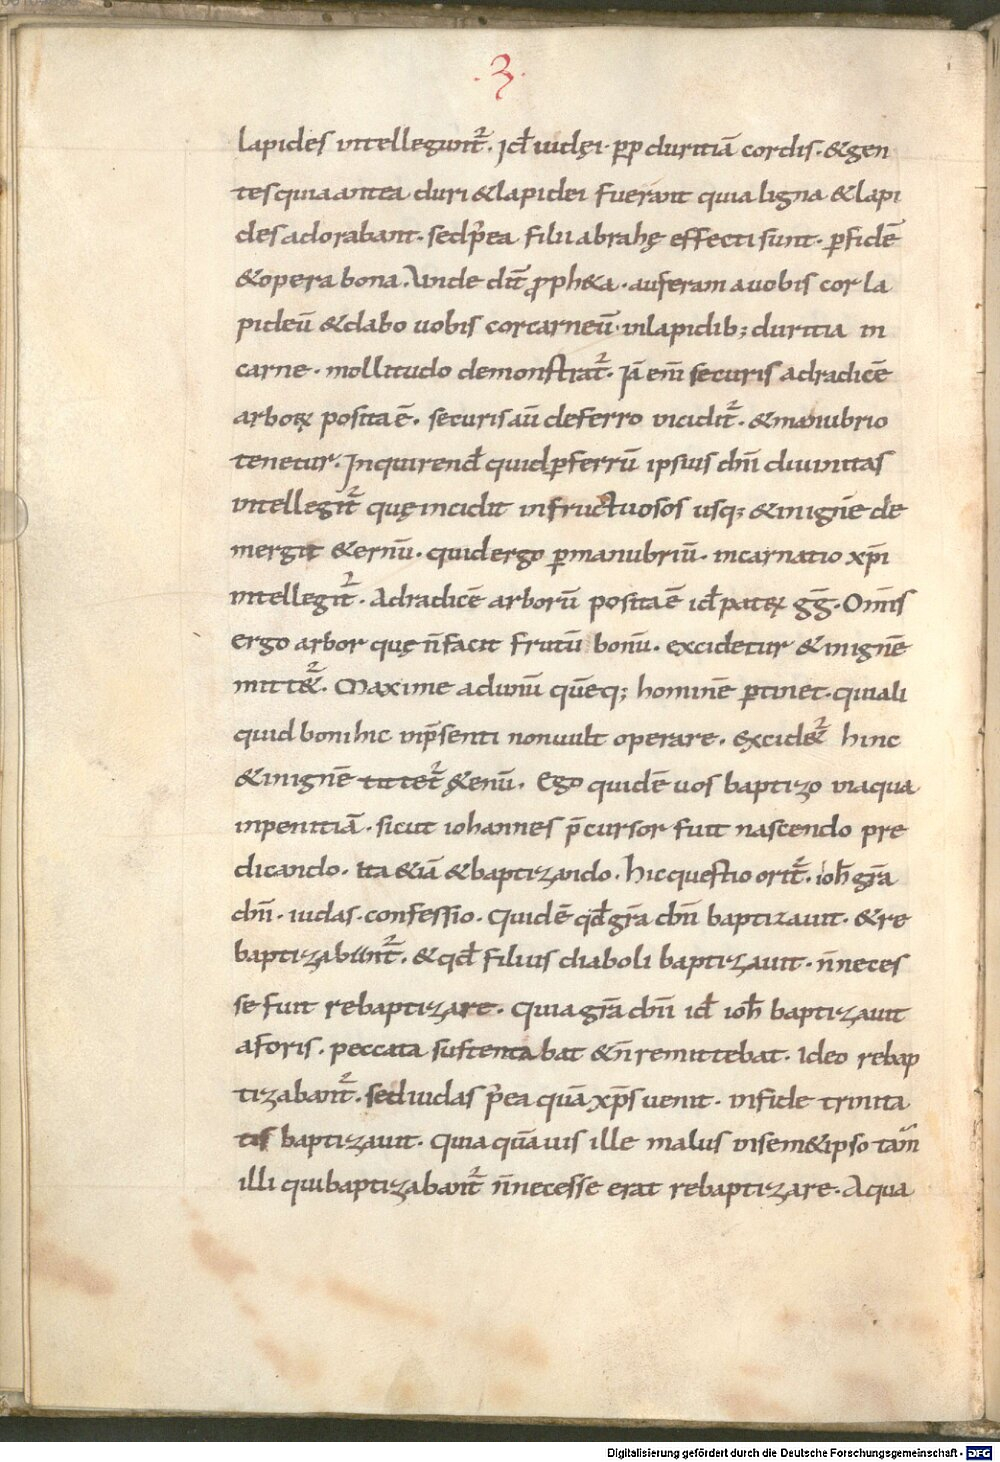 ·3·
lapides intellegunt᷑. id̄ iudęi. ꝓp duritiā cordis. &gen
tes quia antea duri & lapidei fuerant quia ligna & lapi
des adorabant. sed p̄ea filii abrahę effecti sunt. ꝑ fidē
& opera bona. Vnde dic̄ ꝓph&a. auferam a uobis cor la
pideū & dabo uobis cor carneū. in lapidib; duritia in
carne. mollitudo demonstrat᷑. Iā enī securis ad radicē
arboꝝ posita ē. securis aū de ferro incidit᷑. & manubrio
tenetur. Inquirend̄ quid ꝑ ferrū ipsius dn̄i diuinitas
intellegit᷑ quę incidit infructuosos usq; & in ignē de
mergit & ernū. quid ergo ꝑ manubriū. incarnatio xp̄i
intellegit᷑. Ad radicē arborū posita ē id̄ pateꝝ gḡ. Om̄is
ergo arbor quę n̄ facit frutū bonū. excidetur & in ignē
mitt&᷑. Maxime ad unū quēq; hominē ꝑtinet. qui ali
quid boni hic in p̄senti non uult operare. excid&᷑ hinc
& in ignē tutet᷑ &ęnū. Ego quidē uos baptizo in aqua
in penitiā. sicut iohannes p̄cursor fuit nascendo pre
dicando. ita &iā & baptizando. hic questio orit᷑. ioh̄ gr̄a
dn̄i. iudas. confessio. Quidē qd̄ gr̄a dn̄i baptizauit. & re
baptizabunt᷑. & qd̄ filius diaboli baptizauit. n̄ neces
se fuit rebaptizare. Quia gr̄a dn̄i id̄ ioh̄ baptizauit
a foris. peccata sustentabat & n̄ remittebat. Ideo rebap
tizabant᷑. sed iudas p̄ea quā xp̄s uenit. in fide trinita
tis baptizauit. Quia quāuis ille malus in sem& ipso tam̄
illi qui baptizabant᷑ n̄ necesse erat rebaptizare. Aqua
Digitalisierung gefördert durch die Deutsche Forschungsgemeinschaft - DFG